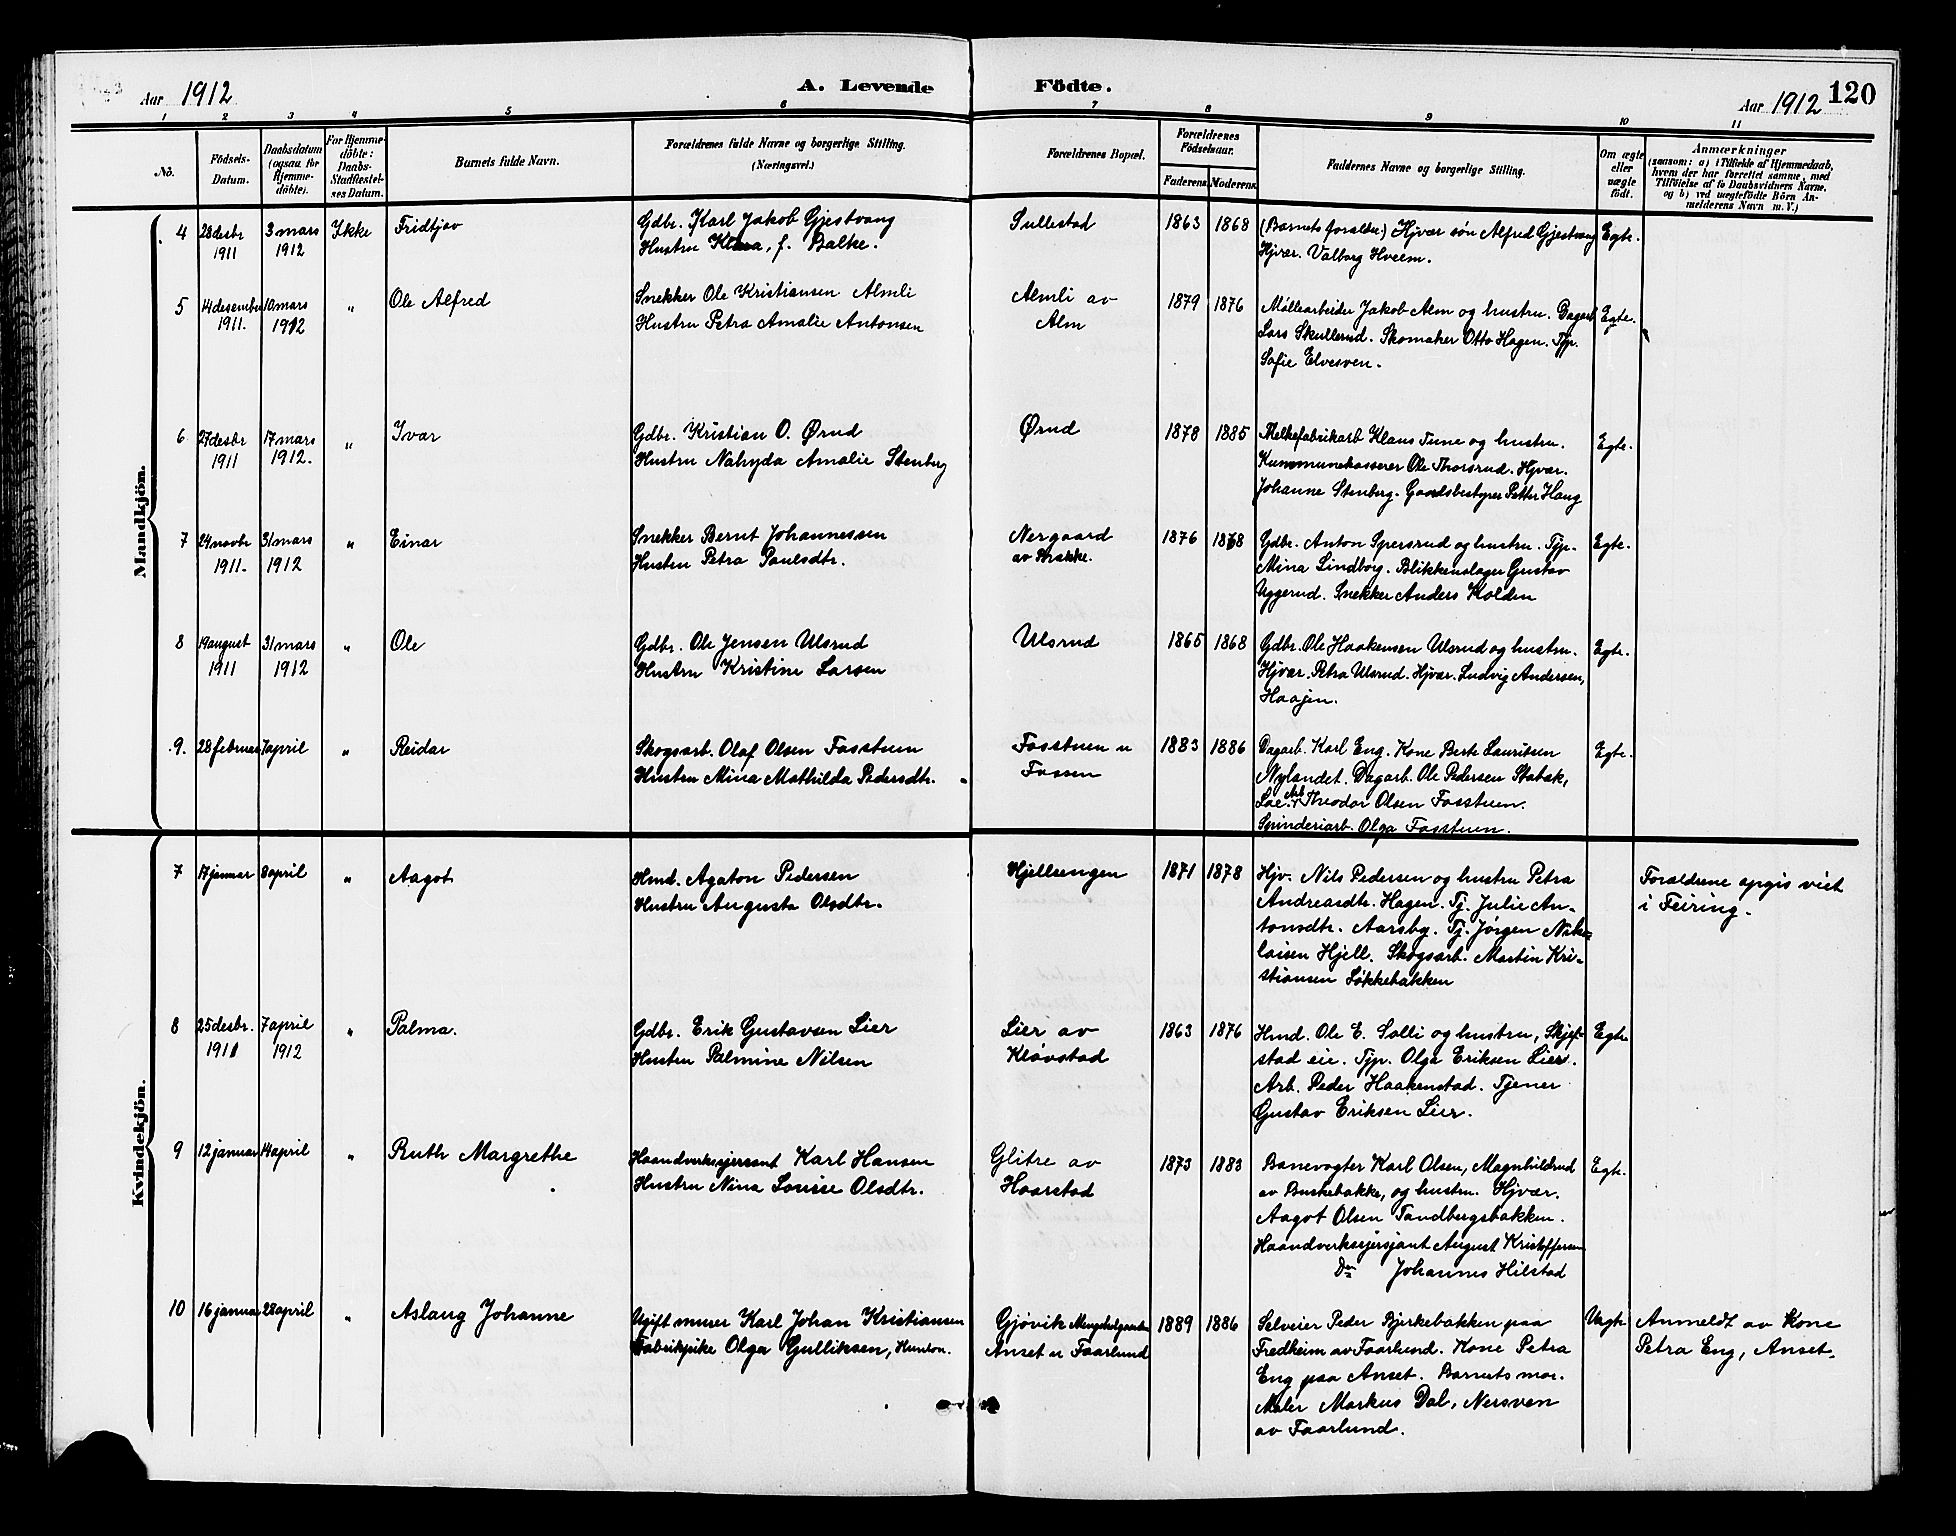 Aar 1912
A. Levende Födte.
Aar 1912 120
1 2 3 4 5 6 7 8 9 10 11
No.
Födsels-Datum.
Daabsdatum (ogsaa for Hjemme-döbte).
For Hjemme-döbte: Daabs-Stadfæstel-ses Datum.
Barnets fulde Navn.
Forældrenes fulde Navne og borgerlige Stilling.
(Næringsvei.)
Forældrenes Bopæl.
Forældrenes Födselsaar.
Faderens Moderens
Faddernes Navne og borgerlige Stilling.
Om ægte eller uægte födt.
Anmærkninger
(saasom: a) i Tilfælde af Hjemmedaab,
hvem der har forrettet samme, med
Tilföielse af to Daabsvidners Navne,
og b) ved uægtefödte Börn An-
melderens Navn m. V.)
Mandkjön.
4 28 desbr 1911 3 mars 1912 Ikke Fridtjov
Gdbr. Karl Jakob Gjestvang
Hustru Klara, f. Balke.
Sullestad 1863 1868
(Barnets forældre) Hjvær søn Alfred Gjestvang
Hjvær. Valborg Hveem.
Egte.
5 14 desember 1911. 10 mars 1912 " Ole Alfred
Snekker Ole Kristiansen Almli
Hustru Petra Amalie Antonsen
Almli av Alm 1879 1876
Møllearbeider Jakob Alm og hustru. Dagarb
Lars Skullerud. Skomaker Otto Hagen. Tjp.
Sofie Elvesven.
Egte.
6 27 desbr 1911 17 mars 1912. " Ivar
Gdbr. Kristian O. Ørud
Hustru Nahyda Amalie Stenberg
Ørud 1878 1885
Melkefabrikarb Klaus Tune og hustru.
Kummunekasserer Ole Thorsrud. Hjvær.
Johanne Stenberg. Gaardsbestyrer Petter Haug
Egte.
7 24 novbr 1911. 31 mars 1912 " Einar
Snekker Bernt Johannessen
Hustru Petra Paulsdtr.
Nergaard av Brakke. 1876 1868
Gdbr. Anton Spersrud og hustru. Tjp.
Mina Lindborg. Blikkenslager Gustav
Uggerud. Snekker Anders Kolden
Egte.
8 19 august 1911 31 mars 1912 " Ole
Gdbr. Ole Jensen Ulsrud
Hustru Kristine Larsen
Ulsrud 1865 1868
Gdbr. Ole Haakensen Ulsrud og hustru.
Hjvær. Petra Ulsrud. Hjvær. Ludvig Andersen,
Haajen.
Egte.
9. 28 februar 7 april " Reidar
Skogsarb. Olaf Olsen Fosstuen
Hustru Mina Mathilda Pedersdtr.
Fosstuen u Fossen 1883 1886
Dagarb. Karl Eng. Kone Berte Lauritsen
Nylandet. Dagarb. Ole Pedersen Stabæk,
Arb. Theodor Olsen Fosstuen.
Spinderiarb. Olga Fosstuen.
Egte.
Kvindekjön.
7 17 januar 8 april " Aagot
Hmd. Agaton Pedersen
Hustru Augusta Olsdtr.
Hjellsengen 1871 1878
Hjv. Nils Pedersen og hustru Petra
Andreasdtr. Hagen. Tj. Julie An-
tonsdtr. Aarsby. Tj. Jørgen Niko-
laisen Hjell. Skogsarb. Martin Kri-
stiansen Løkkebakken
Foraldrene opgis viet
i Feiring.
8 25 desbr. 1911 7 april 1912 " Palma.
Gdbr. Erik Gustavsen Lier
Hustru Palmine Nilsen
Lier av Kløvstad 1863 1876
Hmd. Ole E. Solli og hustru, Skjel-
stad eie. Tjp. Olga Eriksen Lier.
Arb. Peder Haakenstad. Tjener
Gustav Eriksen Lier.
Egte
9 12 januar 14 april " Ruth Margrethe
Haandverkssjersant Karl Hansen
Hustru Nina Lovise Olsdtr.
Glitre av Haarstad 1873 1883
Banevogter Karl Olsen, Magnhildrud
av Buskebakke, og hustru. Hjvær.
Aagot Olsen Tandbergsbakken.
Haandverkssjersjant August Kristoffersen
Do Johannes Hilstad
Egte.
10 16 januar 28 april " Aslaug Johanne
Ugift murer Karl Johan Kristiansen
Fabrikpike Olga Gulliksen, Hunton.
Gjøvik
Anset u Faarlund 1889 1886
Selveier Peder Bjerkebakken paa
Fredheim av Faarlund. Kone Petra
Eng paa Anset. Barnets mor.
Maler Markus Dal, Nersven
av Faarlund.
Uegte
Anmeldt av Kone
Petra Eng, Anset.